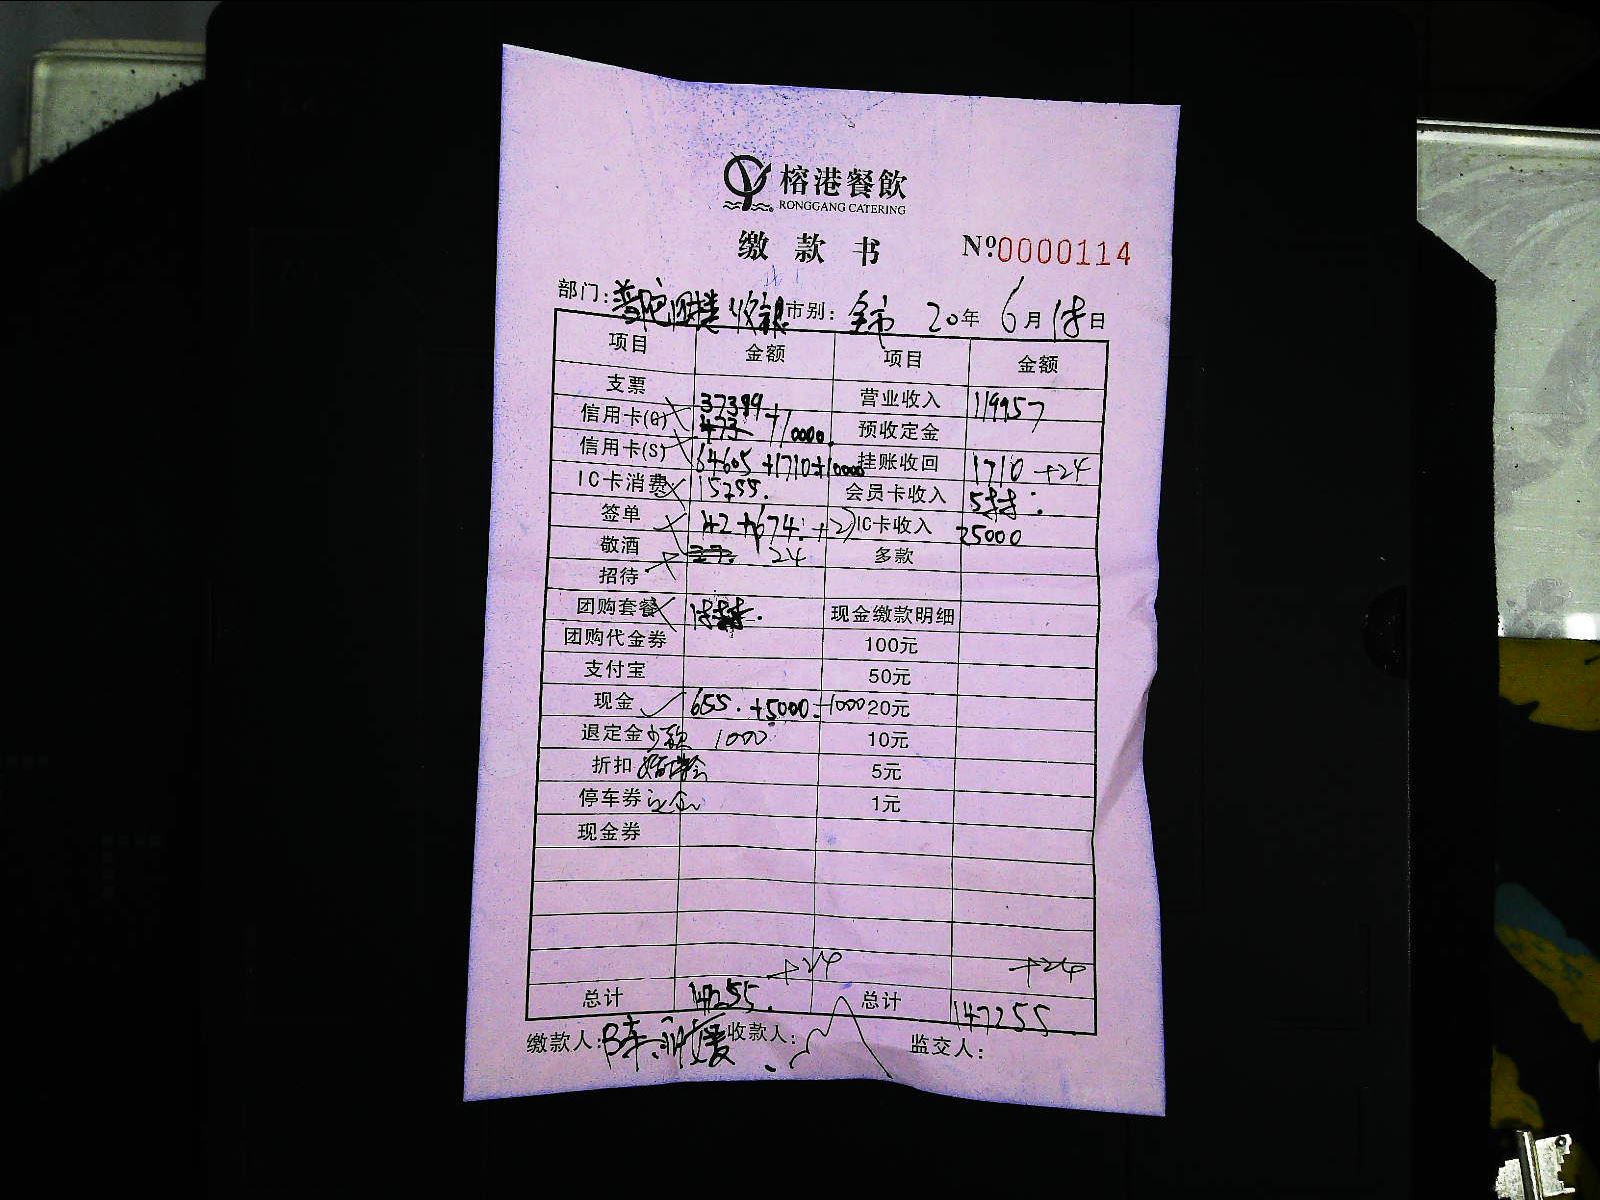 榕港餐飲
RONGGANG CATERING
缴款书 Nº0000114
部门: 收银 市别: 全市 20年 6月 18日
项目 金额 项目 金额
支票 营业收入 119957
信用卡(G) 37399 +10000. 预收定金
信用卡(S) 64605 +1710+10000 挂账收回 1710 +24
IC卡消费 15255. 会员卡收入 588.
签单 142+674. IC卡收入 25000
敬酒 24 多款
招待
团购套餐 现金缴款明细
团购代金券 100元
支付宝 50元
现金 655. +5000-1000 20元
退定金 1000 10元
折扣 5元
停车券 1元
现金券
+24 +24
总计 147255. 总计 147255
缴款人: 收款人: 监交人: